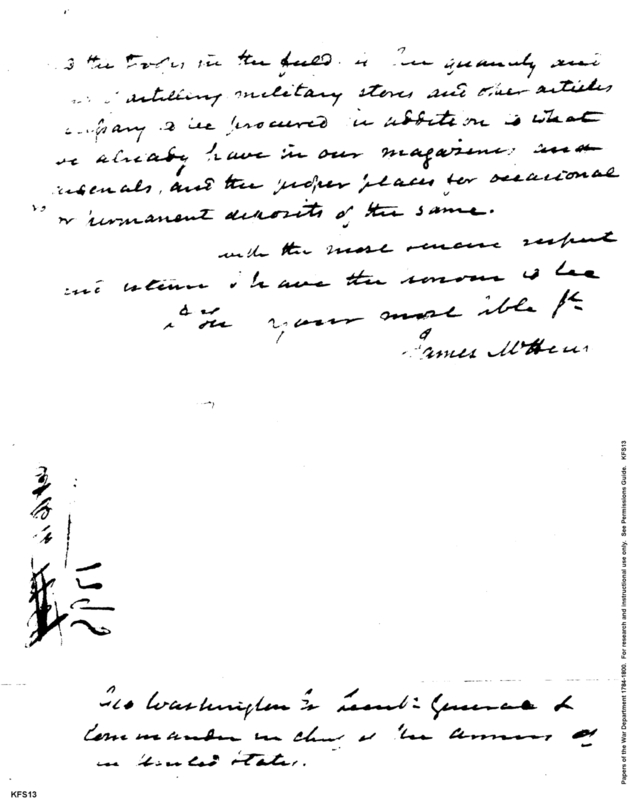 the troops in the field. 
artillery, military stores and other articles
to be procured in addition to what
we already have in our magazines and
arsenals, and the proper places for occasional
or permanent deposits of the same.
with the most sincere respect
and esteem I have the honour to be
your most
James McHenry
Geo Washington
Commander in chief of the armies of
United States.
Papers of the War Department 1784-1800. For research and instructional use only. See Permissions Guide. KFS13
KFS13